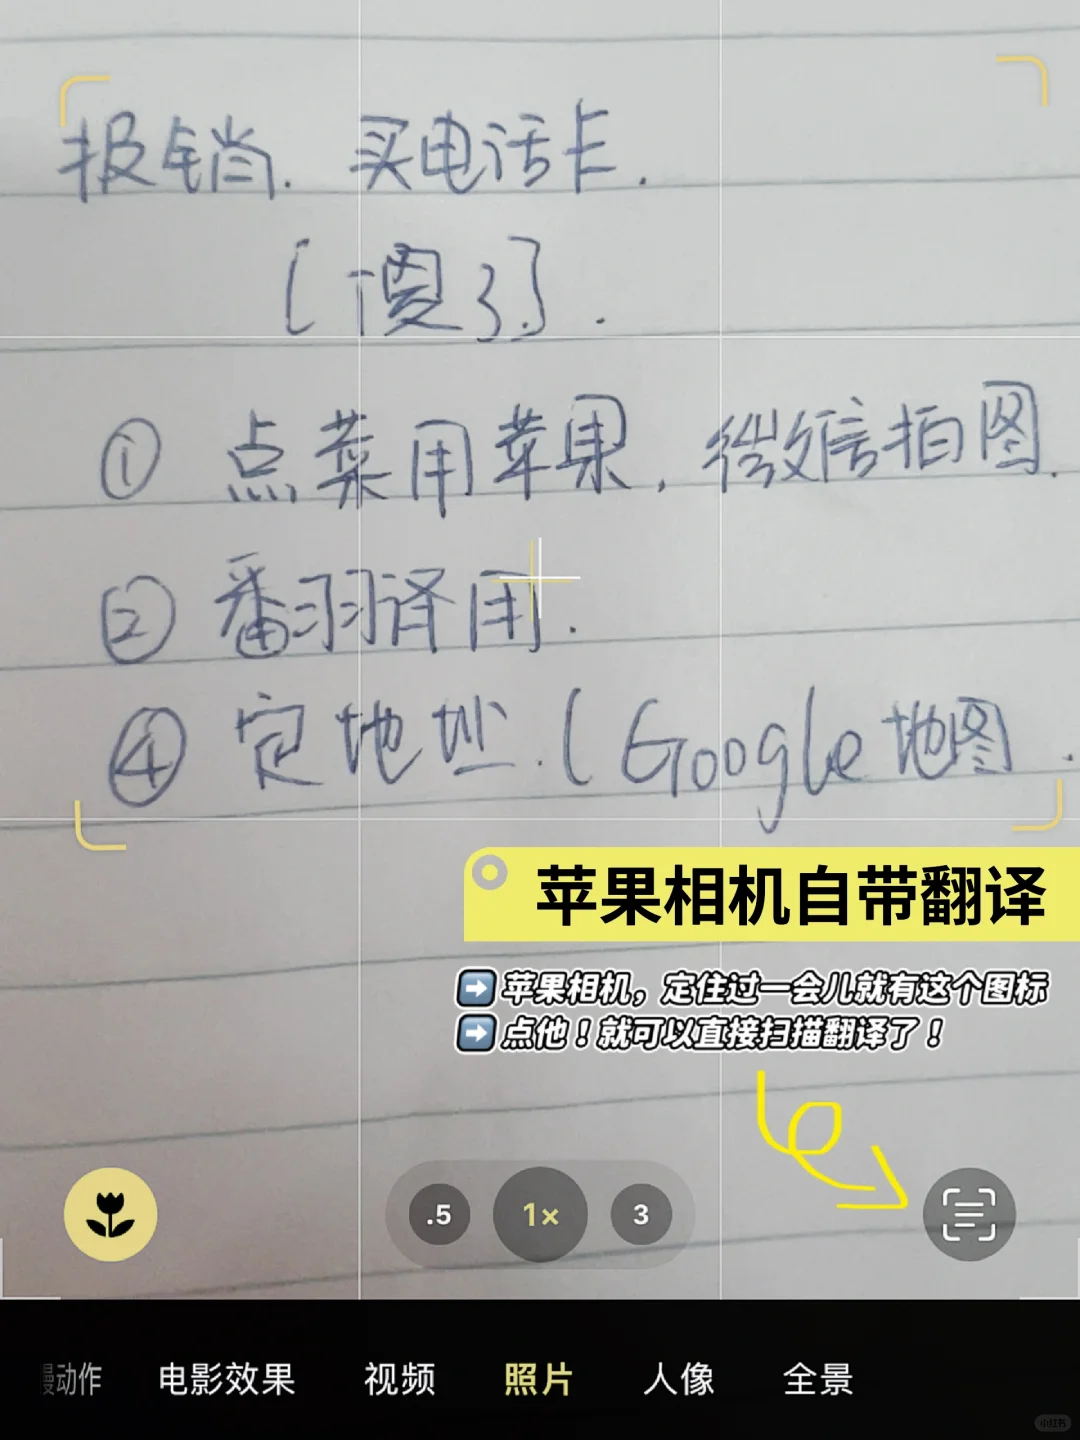 报销. 买电话卡.
[傻了].
① 点菜用苹果, 微信拍图.
② 翻译用.
④ 定地址.(Google地图.
苹果相机自带翻译
➡苹果相机，定住过一会儿就有这个图标
➡点他！就可以直接扫描翻译了！
.5 1× 3
慢动作 电影效果 视频 照片 人像 全景
小红书